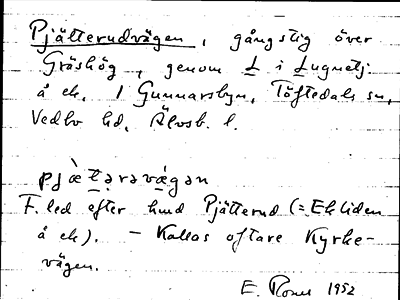 Pjätterudvägen, gångstig över
Gröshög, genom L i Lugnetj.
å ek. 1 Gunnarsbyn, Töftedals sn,
Vedbo hd, Älvsb. l.
pjàtərəvägən
F. led efter hmd Pjätterud (= Ekliden
å ek). – Kallas oftare Kyrke-
vägen.
E. 1952